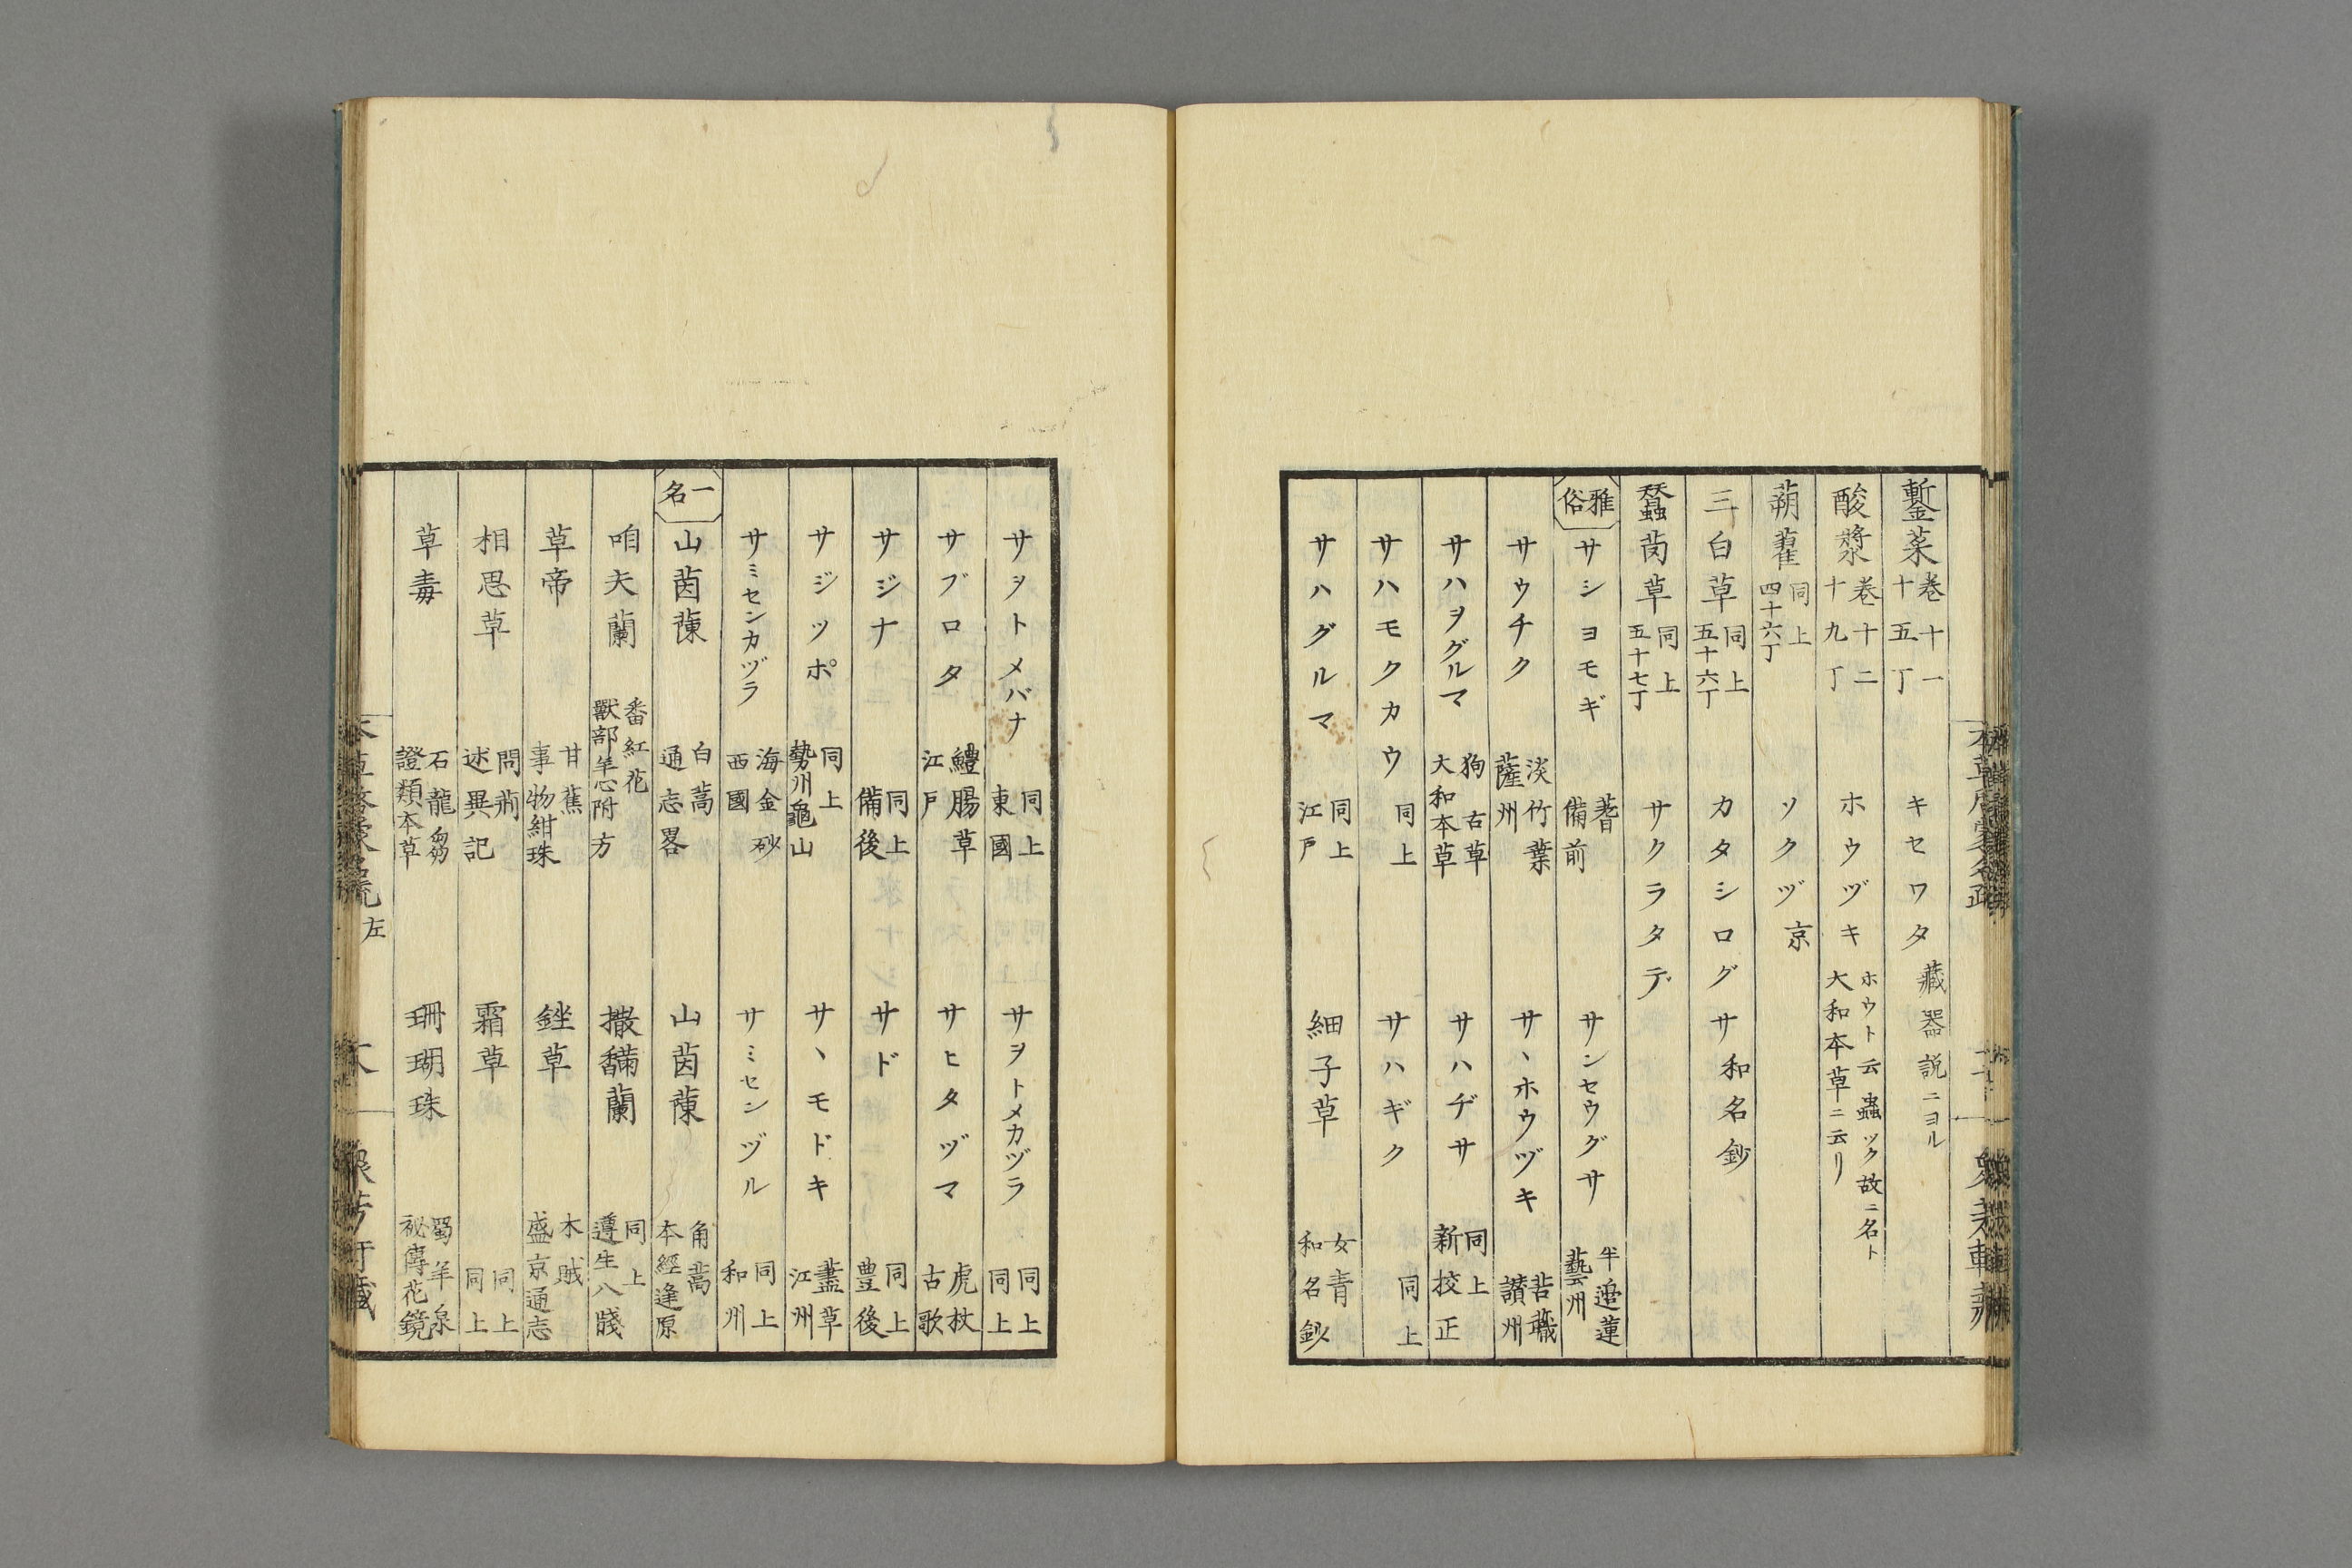 鏨菜 卷十一 十五丁 キセワタ 藏器説ニヨル
酸漿 卷十二 十九丁 ホウヅキ ホウト云蟲ツク故ニ名ト 大和本草ニ云リ
蒴藋 同上 四十六丁 ソクヅ 京
三白草 同上 五十六丁 カタシログサ 和名鈔
蠶䒷草 同上 五十七丁 サクラタデ
雅俗
サシヨモギ 蓍 備前 サンセウグサ 半邉蓮 藝州
サウチク 淡竹葉 薩州 サヽホウヅキ 苦蘵 讃州
サハヲグルマ 狗古草 大和本草 サハヂサ 同上 新挍正
サハモクカウ 同上 サハギク 同上
サハグルマ 同上 江戸 細子草 女青 和名鈔
サヲトメバナ 同上 東國 サヲトメカヅラ 同上 同上
サブロタ 鱧腸草 江戸 サヒタヅマ 虎杖 古歌
サジナ 同上 備後 サド 同上 豊後
サジツポ 同上 勢州龜山 サヽモドキ 藎草 江州
サミセンカヅラ 海金砂 西國 サミセンヅル 同上 和州
一名
山茵蔯 白蒿 通志畧 山茵蔯 角蒿 本經逢原
咱夫蘭 番紅花 獸部羊心附方 撒馥蘭 同上 遵生八牋
草帝 甘蕉 事物紺珠 銼草 木賊 盛京通志
相思草 問荊 述異記 霜草 同上 同上
草毒 石龍芻 證類本草 珊瑚珠 蜀羊泉 祕傳花鏡
左